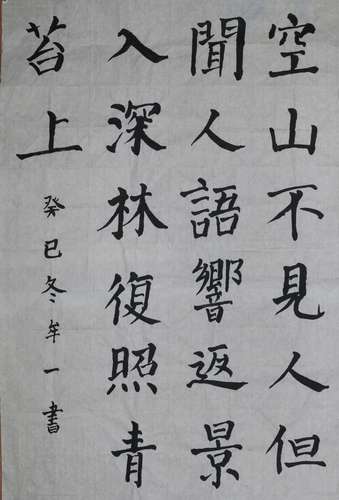 空山不見人但
聞人語響返景
入深林復照青
苔上
癸巳冬牟一書